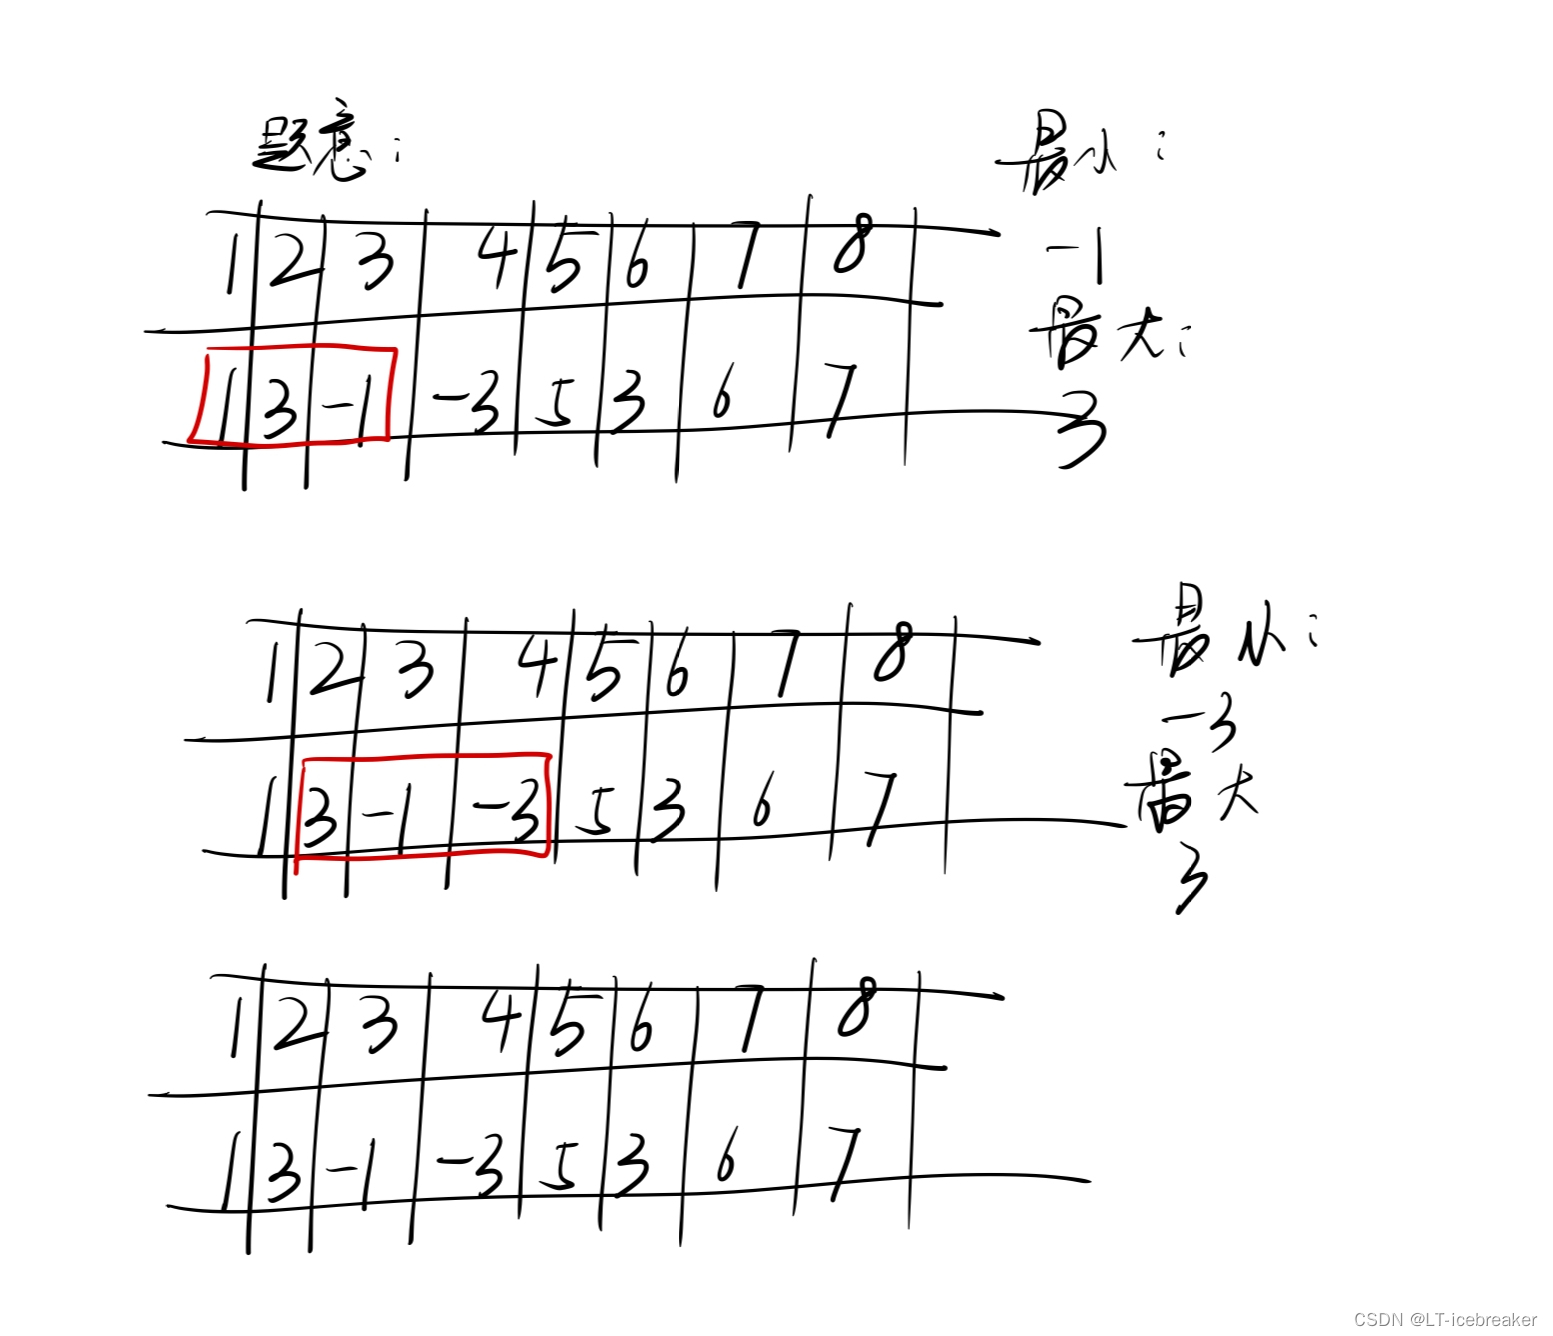 题意：
最小：
1 2 3 4 5 6 7 8
-1
最大：
1 3 -1 -3 5 3 6 7
3
最小：
1 2 3 4 5 6 7 8
-3
最大
1 3 -1 -3 5 3 6 7
3
1 2 3 4 5 6 7 8
1 3 -1 -3 5 3 6 7
CSDN @LT-icebreaker